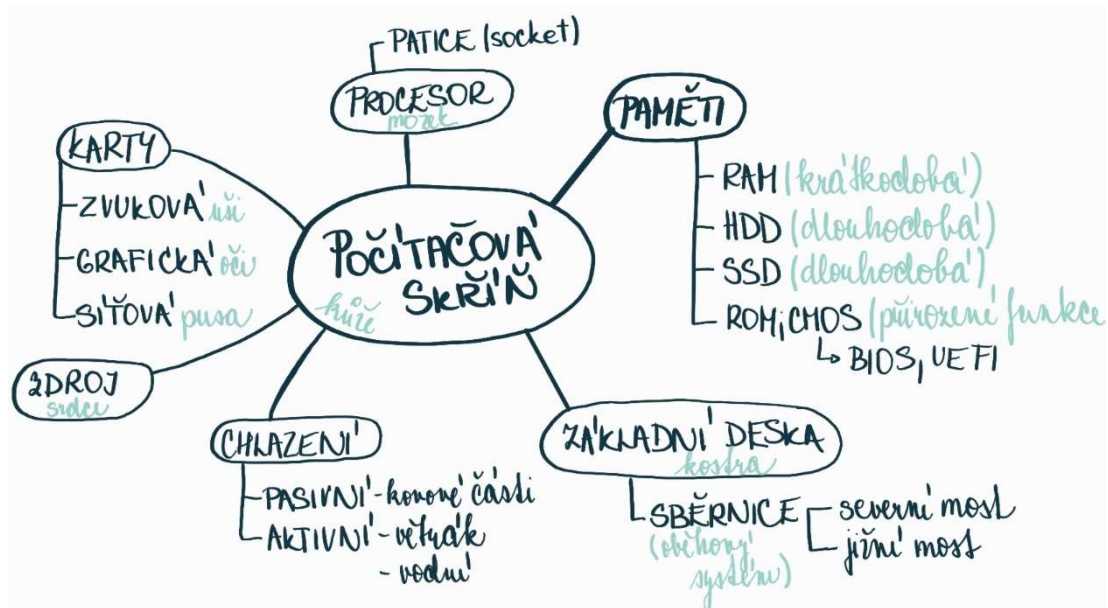 PATICE (socket)
PROCESOR
mozek
PAMĚTI
RAM (krátkodobá)
HDD (dlouhodobá)
SSD (dlouhodobá)
ROM, CMOS (přirozené funkce
BIOS, UEFI
KARTY
ZVUKOVÁ uši
GRAFICKÁ oči
SÍŤOVÁ pusa
POČÍTAČOVÁ
SKŘÍŇ
kůže
ZDROJ
srdce
CHLAZENÍ
PASIVNÍ - kovové části
AKTIVNÍ - větrák
- vodní
ZÁKLADNÍ DESKA
kostra
SBĚRNICE
(oběhový
systém)
severní most
jižní most